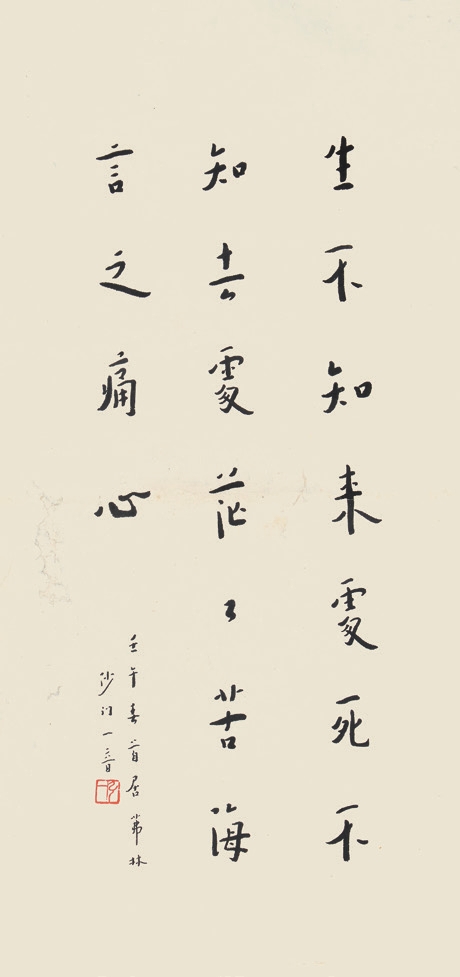 生不知来處死不
知去處茫々苦海
言之痛心
壬午春首居茀林
沙门一音